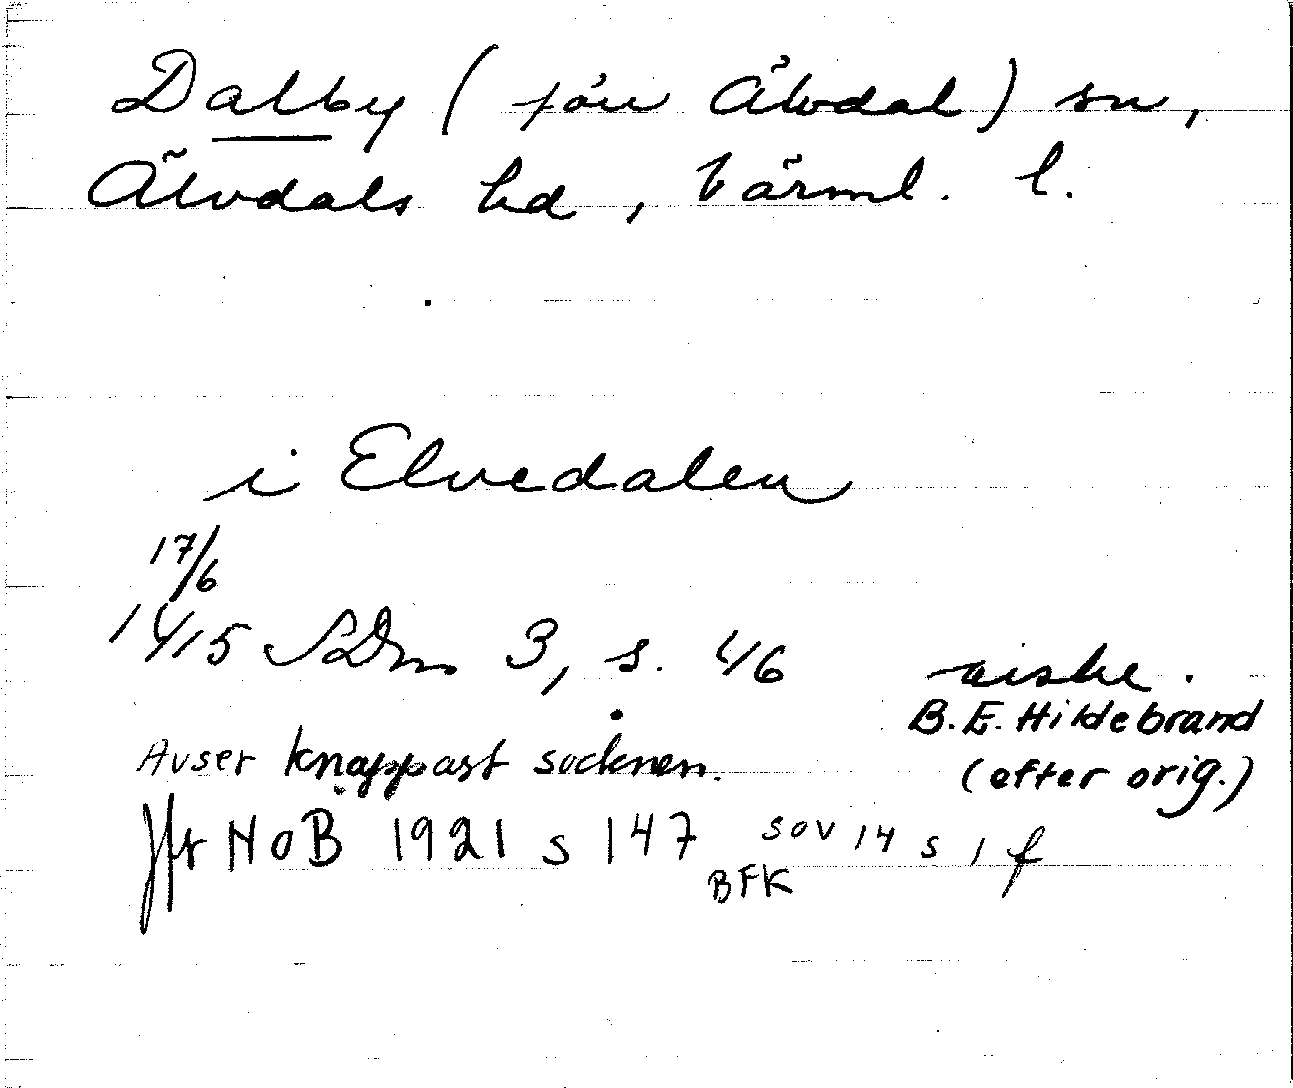 Dalby (förr Älvdal) sn,
Älvdals hd, Värml. l.
i Elvedalen
17/6
1415 SDns 3, s. 46 avskr.
B.E. Hildebrand
(efter orig.)
Avser knappast socknen.
Jfr NoB 1921 s 147 SOV 14 s 1 f
BFK